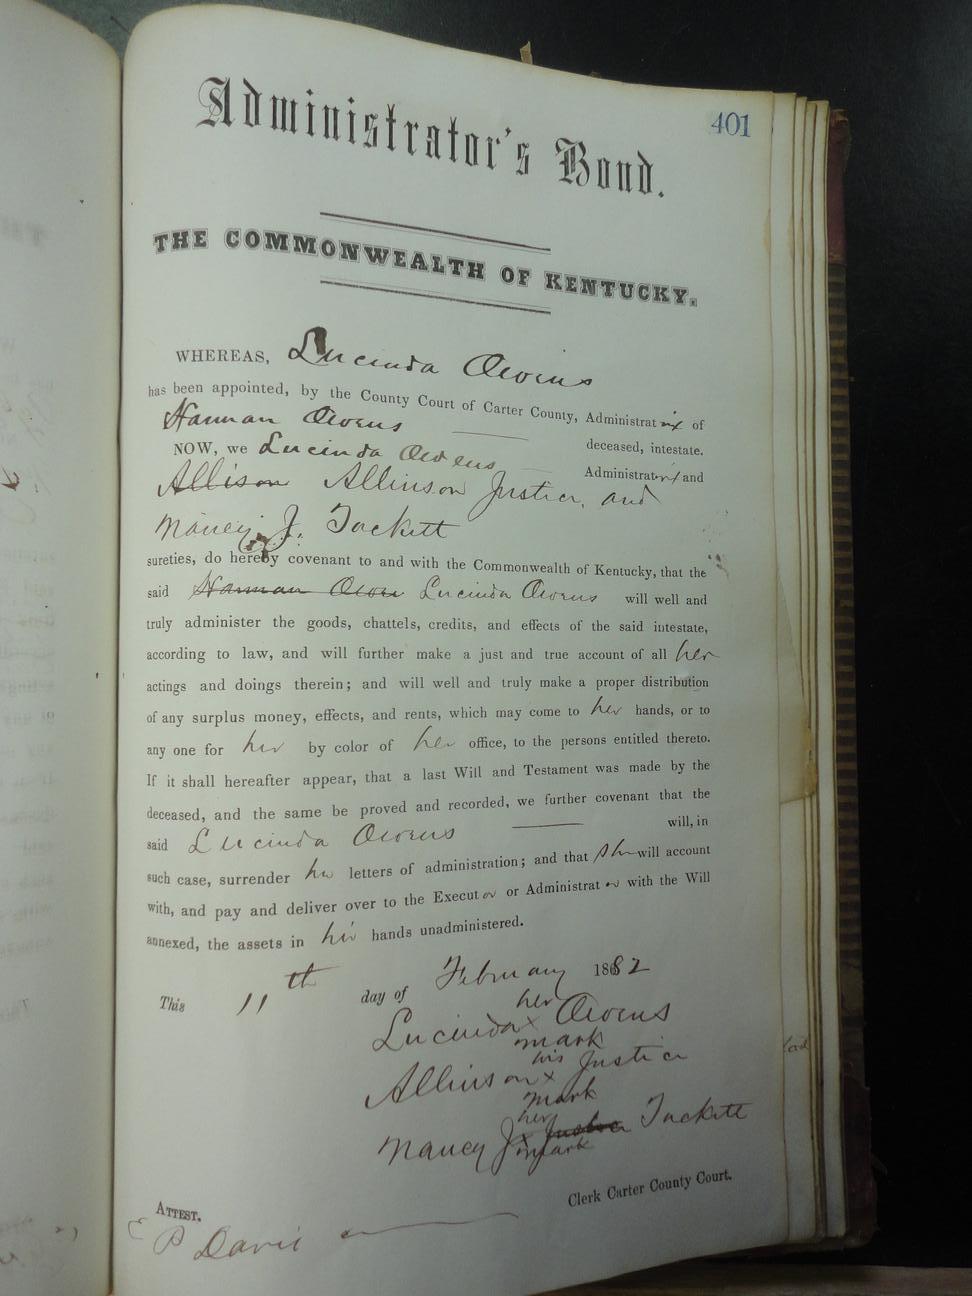 401
Administrator's Bond.
THE COMMONWEALTH OF KENTUCKY.
WHEREAS, Lucinda Owens
has been appointed, by the County Court of Carter County, Administratrix of
Harman Owens deceased, intestate.
NOW, we Lucinda Owens Administratrix and
Allison Allinson Justice, and
Nancy J. Tackett
sureties, do hereby covenant to and with the Commonwealth of Kentucky, that the
said Harman Owen Lucinda Owens will well and
truly administer the goods, chattels, credits, and effects of the said intestate,
according to law, and will further make a just and true account of all her
actings and doings therein; and will well and truly make a proper distribution
of any surplus money, effects, and rents, which may come to her hands, or to
any one for her by color of her office, to the persons entitled thereto.
If it shall hereafter appear, that a last Will and Testament was made by the
deceased, and the same be proved and recorded, we further covenant that the
said Lucinda Owens will, in
such case, surrender her letters of administration; and that she will account
with, and pay and deliver over to the Executor or Administrator with the Will
annexed, the assets in her hands unadministered.
This 11th day of February 1882
her
Lucinda x Owens
mark
his
Allinson x Justice
mark
her
Nancy J x Tackett
mark
Clerk Carter County Court.
ATTEST.
P Davis